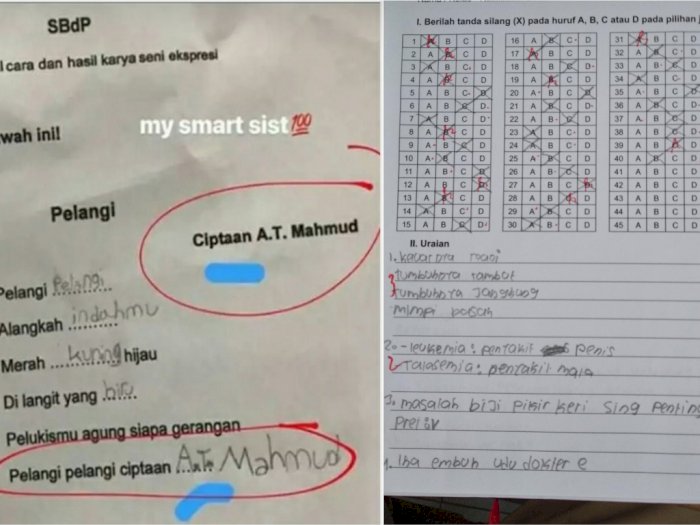 SBdP
l cara dan hasil karya seni ekspresi
wah ini!
my smart sist💯
Pelangi
Ciptaan A.T. Mahmud
Pelangi Pelangi
Alangkah indahmu
Merah kuning hijau
Di langit yang biru
Pelukismu agung siapa gerangan
Pelangi pelangi ciptaan A.T. Mahmud
I. Berilah tanda silang (X) pada huruf A, B, C atau D pada pilihan
1 A B C D 16 A B C D 31 A B C D
2 A B C D 17 A B C D 32 A B C D
3 A B C D 18 A B C D 33 A B C D
4 A B C D 19 A B C D 34 A B C D
5 A B C D 20 A B C D 35 A B C D
6 A B C D 21 A B C D 36 A B C D
7 A B C D 22 A B C D 37 A B C D
8 A B C D 23 A B C D 38 A B C D
9 A B C D 24 A B C D 39 A B C D
10 A B C D 25 A B C D 40 A B C D
11 A B C D 26 A B C D 41 A B C D
12 A B C D 27 A B C D 42 A B C D
13 A B C D 28 A B C D 43 A B C D
14 A B C D 29 A B C D 44 A B C D
15 A B C D 30 A B C D 45 A B C D
II. Uraian
1.
tumbuhnya rambut
tumbuhnya
mimpi basah
2. - leukemia : penyakit penis
Talasemia : penyakit mata
3. masalah biji pikir keri sing penting
4. lha embuh dokter e